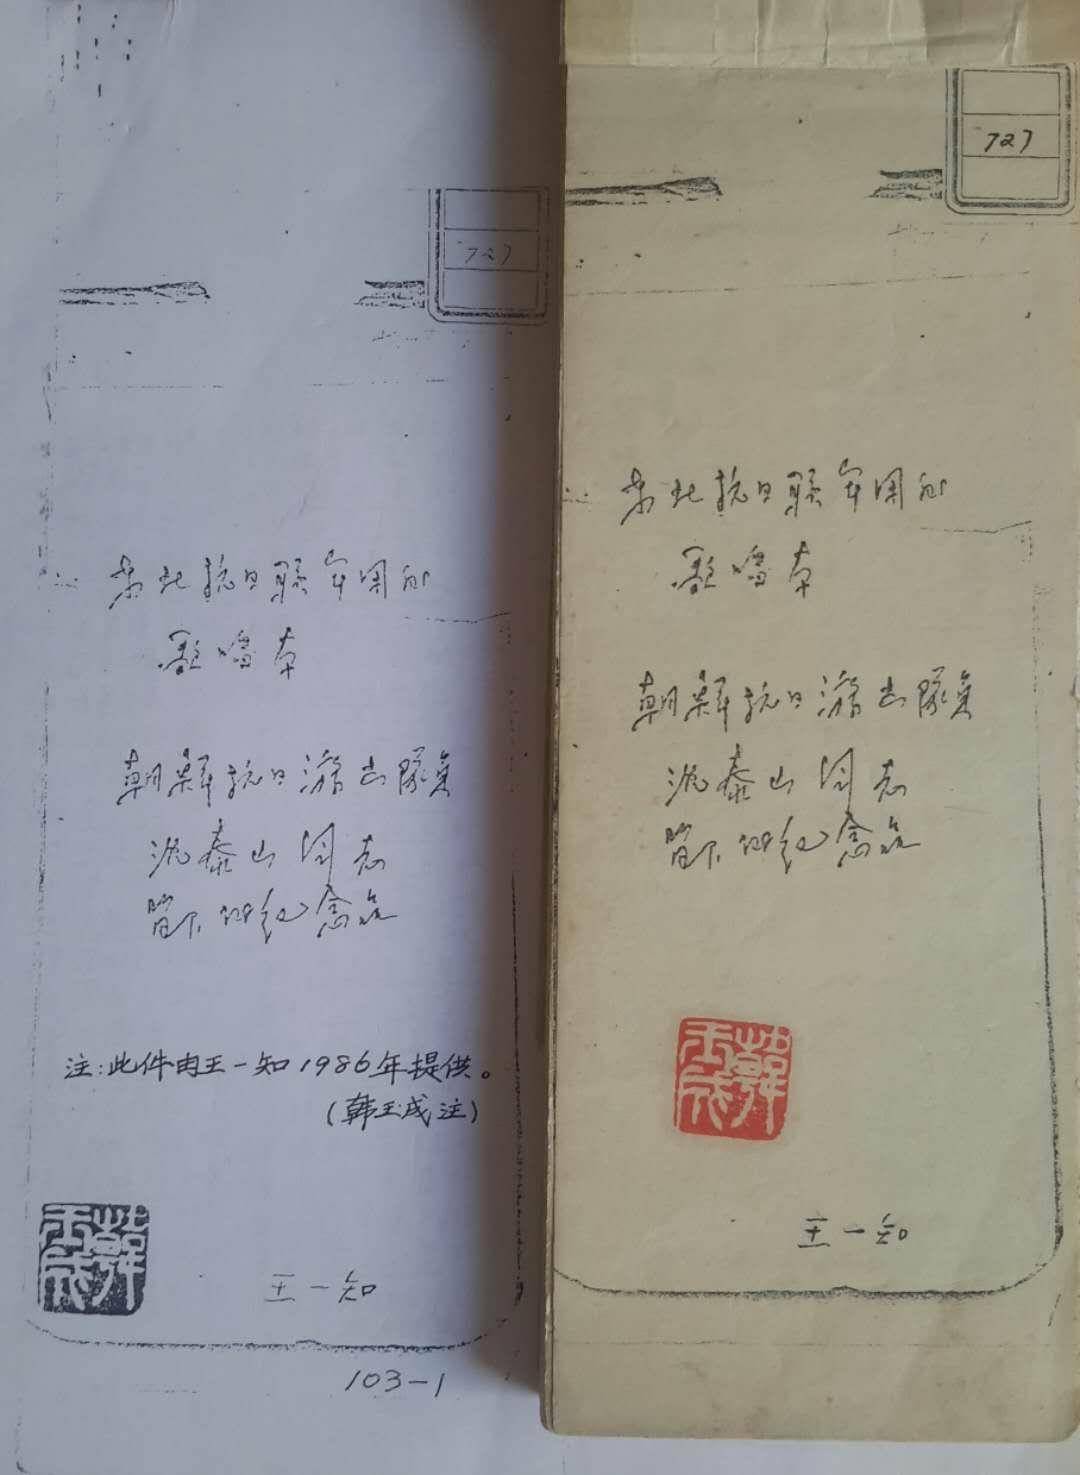 727
东北抗日联军用的
歌唱本
朝鲜抗日游击队员
沈泰山同志
留下的纪念品
注:此件由王一知1986年提供。
(韩玉成注)
韩玉成
王一知
103-1
727
东北抗日联军用的
歌唱本
朝鲜抗日游击队员
沈泰山同志
留下的纪念品
韩玉成
王一知